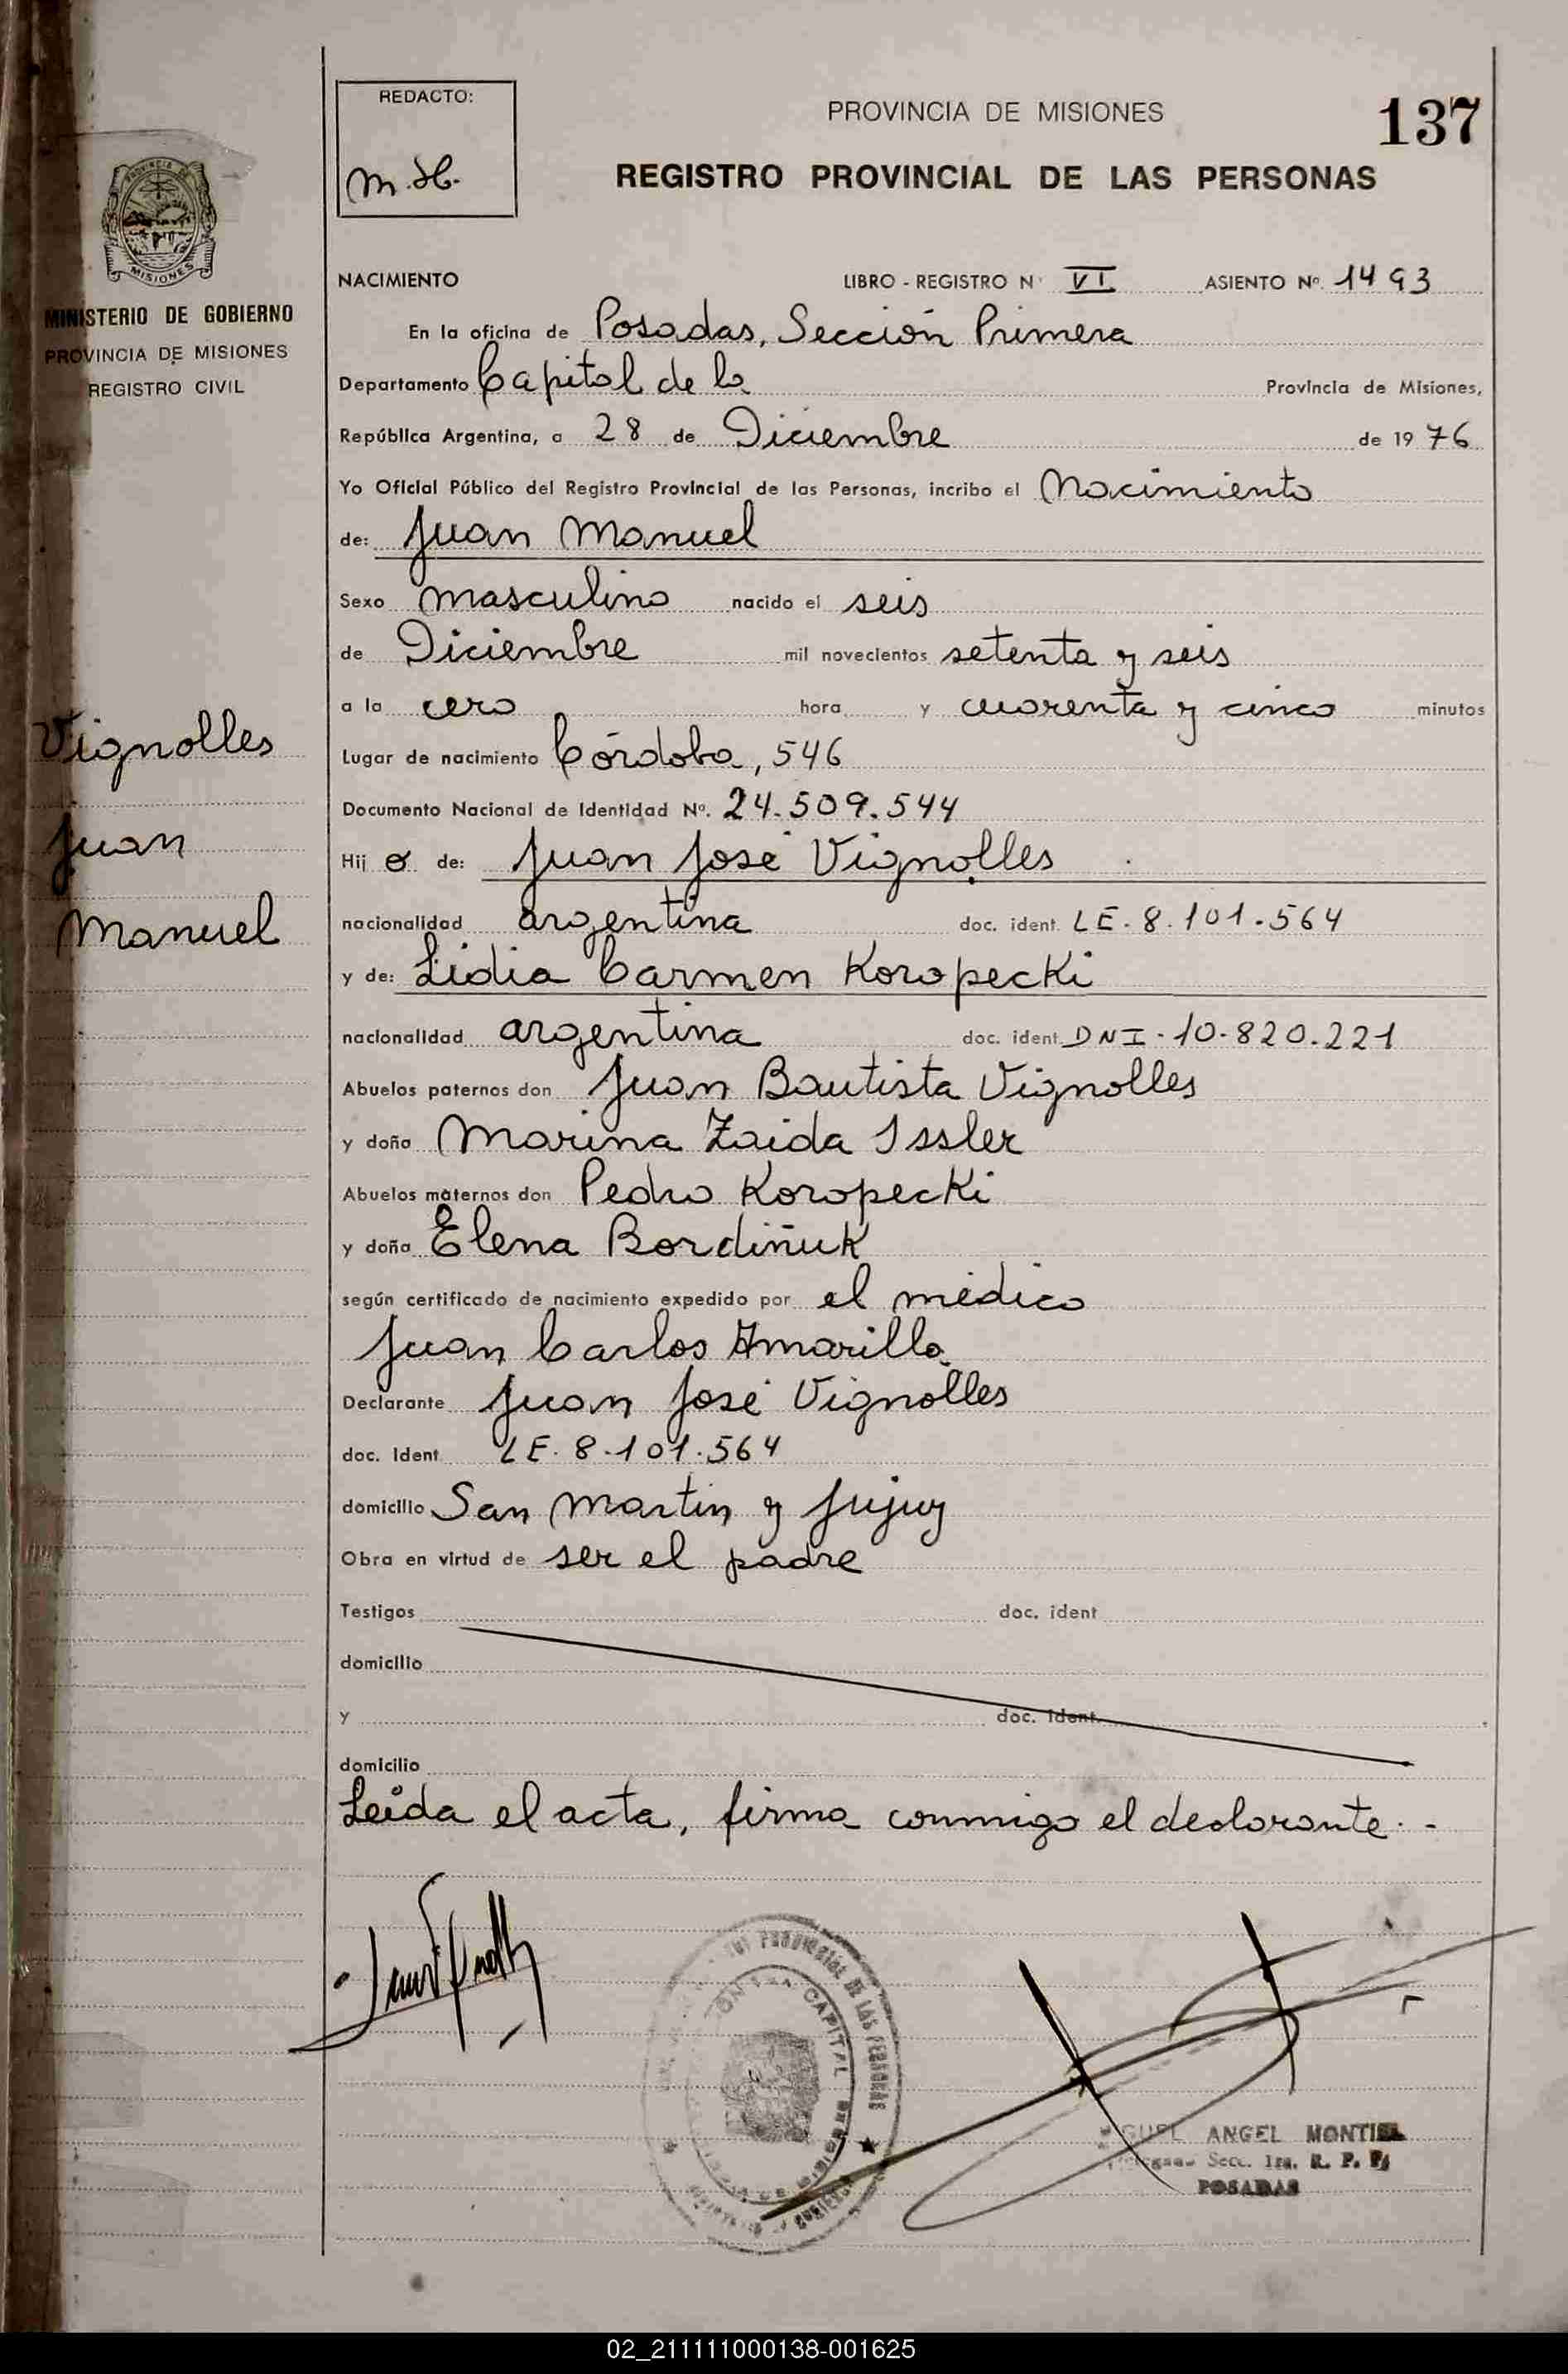 137
REDACTO:
m.H.
PROVINCIA DE MISIONES
REGISTRO PROVINCIAL DE LAS PERSONAS
PROVINCIA DE
MISIONES
MINISTERIO DE GOBIERNO
PROVINCIA DE MISIONES
REGISTRO CIVIL
NACIMIENTO LIBRO - REGISTRO Nº VI ASIENTO Nº 1493
En la oficina de Posadas, Sección Primera
Departamento Capital de la Provincia de Misiones,
República Argentina, a 28 de Diciembre de 1976
Yo Oficial Público del Registro Provincial de las Personas, incribo el Nacimiento
de: Juan Manuel
Sexo masculino nacido el seis
de Diciembre mil novecientos setenta y seis
a la cero hora y cuarenta y cinco minutos
Lugar de nacimiento Córdoba, 546
Documento Nacional de Identidad Nº. 24.509.544
Hijo de: Juan José Vignolles
nacionalidad argentina doc. ident. LE. 8.101.564
y de: Lidia Carmen Koropecki
nacionalidad argentina doc. ident DNI - 10.820.221
Abuelos paternos don Juan Bautista Vignolles
y doña Marina Zaida Issler
Abuelos maternos don Pedro Koropecki
y doña Elena Bordiñuk
según certificado de nacimiento expedido por el médico
Juan Carlos Amarilla
Declarante Juan José Vignolles
doc. Ident LE. 8.101.564
domicilio San Martín y Jujuy
Obra en virtud de ser el padre
Testigos doc. ident
domicilio
y doc. ident
domicilio
Leída el acta, firma conmigo el declarante. -
Vignolles
Juan
Manuel
PROVINCIAL DE LAS PERSONAS
CAPITAL
ANGEL MONTIEL
Secc. 1ra. R. P. P.
POSADAS
02_211111000138-001625